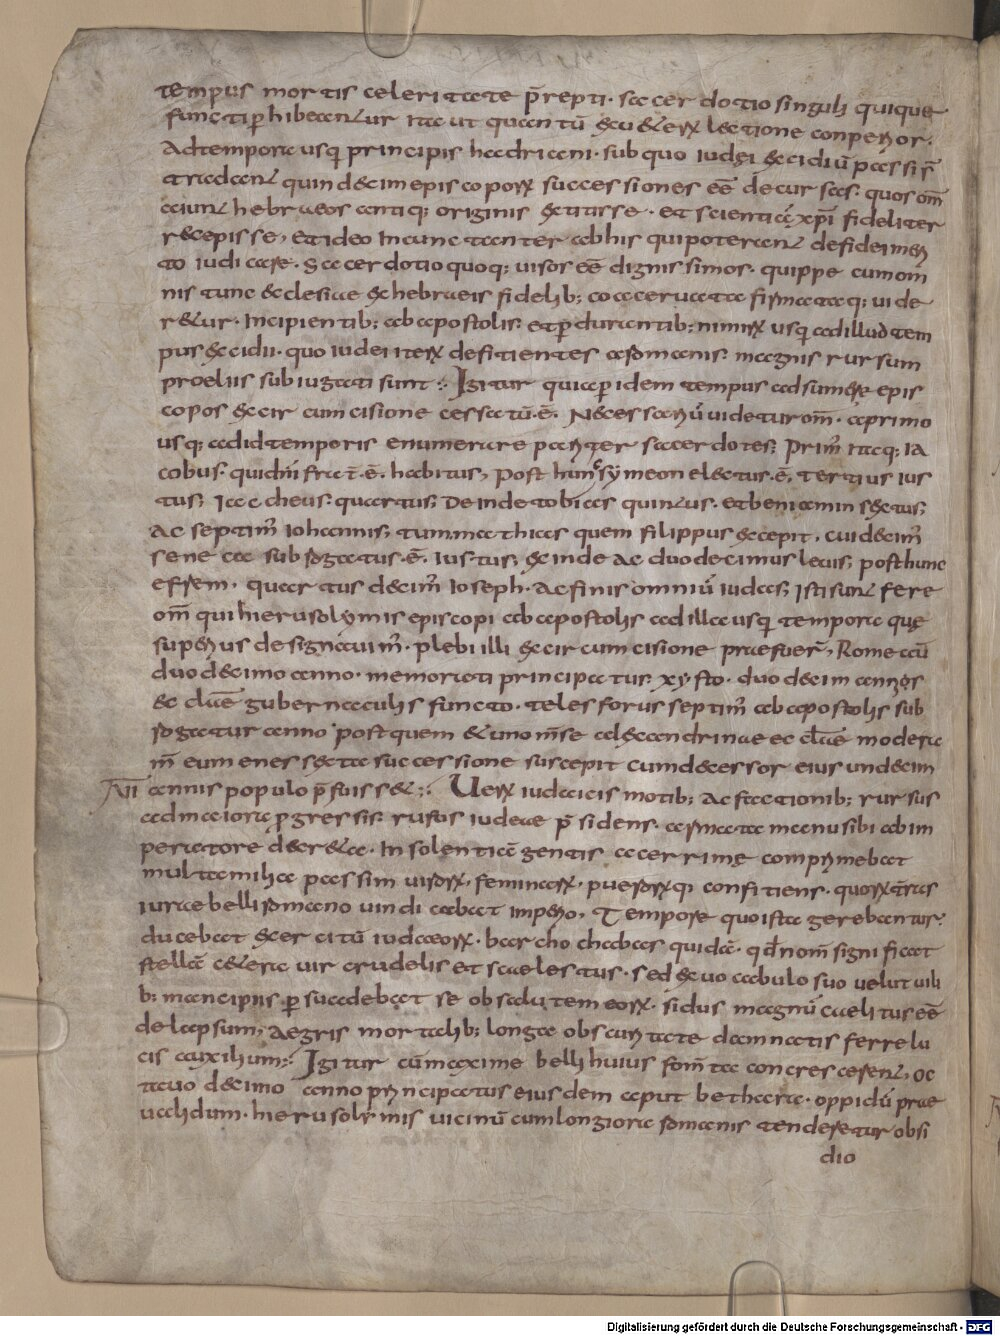 tempus mortis celeritate p̄repti· sacerdotio singuli quique
functi ꝑhibeantur ita ut quantū ex ueterꝝ lectione conperior·
Ad tempora usq; principis hadriani· sub quo iudęi excidiū passi sī
tradant quindecim episcoporꝝ successiones eē decursas· quos om̄
aiunt hebraeos antiq; originis extitisse· et scientiā xp̄i fideliter
recepisse, et ideo incunctanter ab his qui poterant de fidei meri
to iudicare· Sacerdotio quoq; uisos eē dignissimos· quippe cum om
nis tunc ecclesiae ex hebraeis fidelib; coaceruata firmataq; uide
retur· Incipientib; ab apostolis et ꝑdurantib; nimirꝝ usq; ad illud tem
pus excidii· quo iudei iterꝝ defitientes a romanis magnis rursum
proeliis subiugati sunt·:· Igitur quia ꝑ idem tempus adsumere epis
copos ex circumcisione cessatū·ē· Necessariū uidetur om̄· a primo
usq; ad id temporis enumerare pariter sacerdotes; Prim̄ itaq; Ia
cobus· qui dn̄i frat̄·ē· habitus, Post hunc symeon electus·ē, Tertius ius
tus; Iaccheus· quartus; Deinde tobias quintus· et beniamin sextus;
Ac septim̄ iohannis; tum mathias quem filippus excepit, cui decim̄
seneca subrogatus·ē· Iustus; exinde ac duodecimus leuis; post hunc
effrem· quartus decim̄ Ioseph· ac finis omniū iudas; Isti sunt fere
om̄ qui hierusolymis episcopi ab apostolis ad illa usq; tempora quę
superius designauim̄· plebi illi ex circumcisione praefuer̄, Rome aū
duodecimo anno· memorati principatus· xysto· duodecim annos
ecclāe gubernaculis functo· telesforus septim̄ ab apostolis sub
rogatur anno postquem et uno m̄se alexandrinae ecclāe modera
m̄ eumenes sexta successione suscepit cum decessor eius undecim
annis populo p̄fuisset·:· Uerꝝ iudaicis motib; ac factionib; rursus
ad maiora ꝓgressis· rufus iudeae p̄sidens· armata manu sibi ab im
peratore decreta· Insolentiā gentis acerrimę comprimebat
multa milia passim uirorꝝ, feminarꝝ, puerorꝝq; confitiens· quorꝝ terras
iurae belli romano uindicabat imperio, Tempore quo ista gerebantur·
ducebat exercitū iudaeorꝝ· barchochabas quidā· qd̄ nom̄ significat
stellā cetera uir crudelis et scaelestus· sed ex uocabulo suo uelut uili
b; mancipiis ꝑsuadebat se ob salutem eorꝝ· sidus magnū caelitus eē
delapsum, aegris mortalib; longa obscuritate damnatis ferre lu
cis auxilium·:· Igitur cū maxime belli huius fom̄ta concrescerent, oc
tauo decimo anno principatus eiusdem apud bethaera· oppidū prae
ualidum· hierusolymis uicinū cum longiora romanis tenderetur obsi
dio
Digitalisierung gefördert durch die Deutsche Forschungsgemeinschaft - DFG